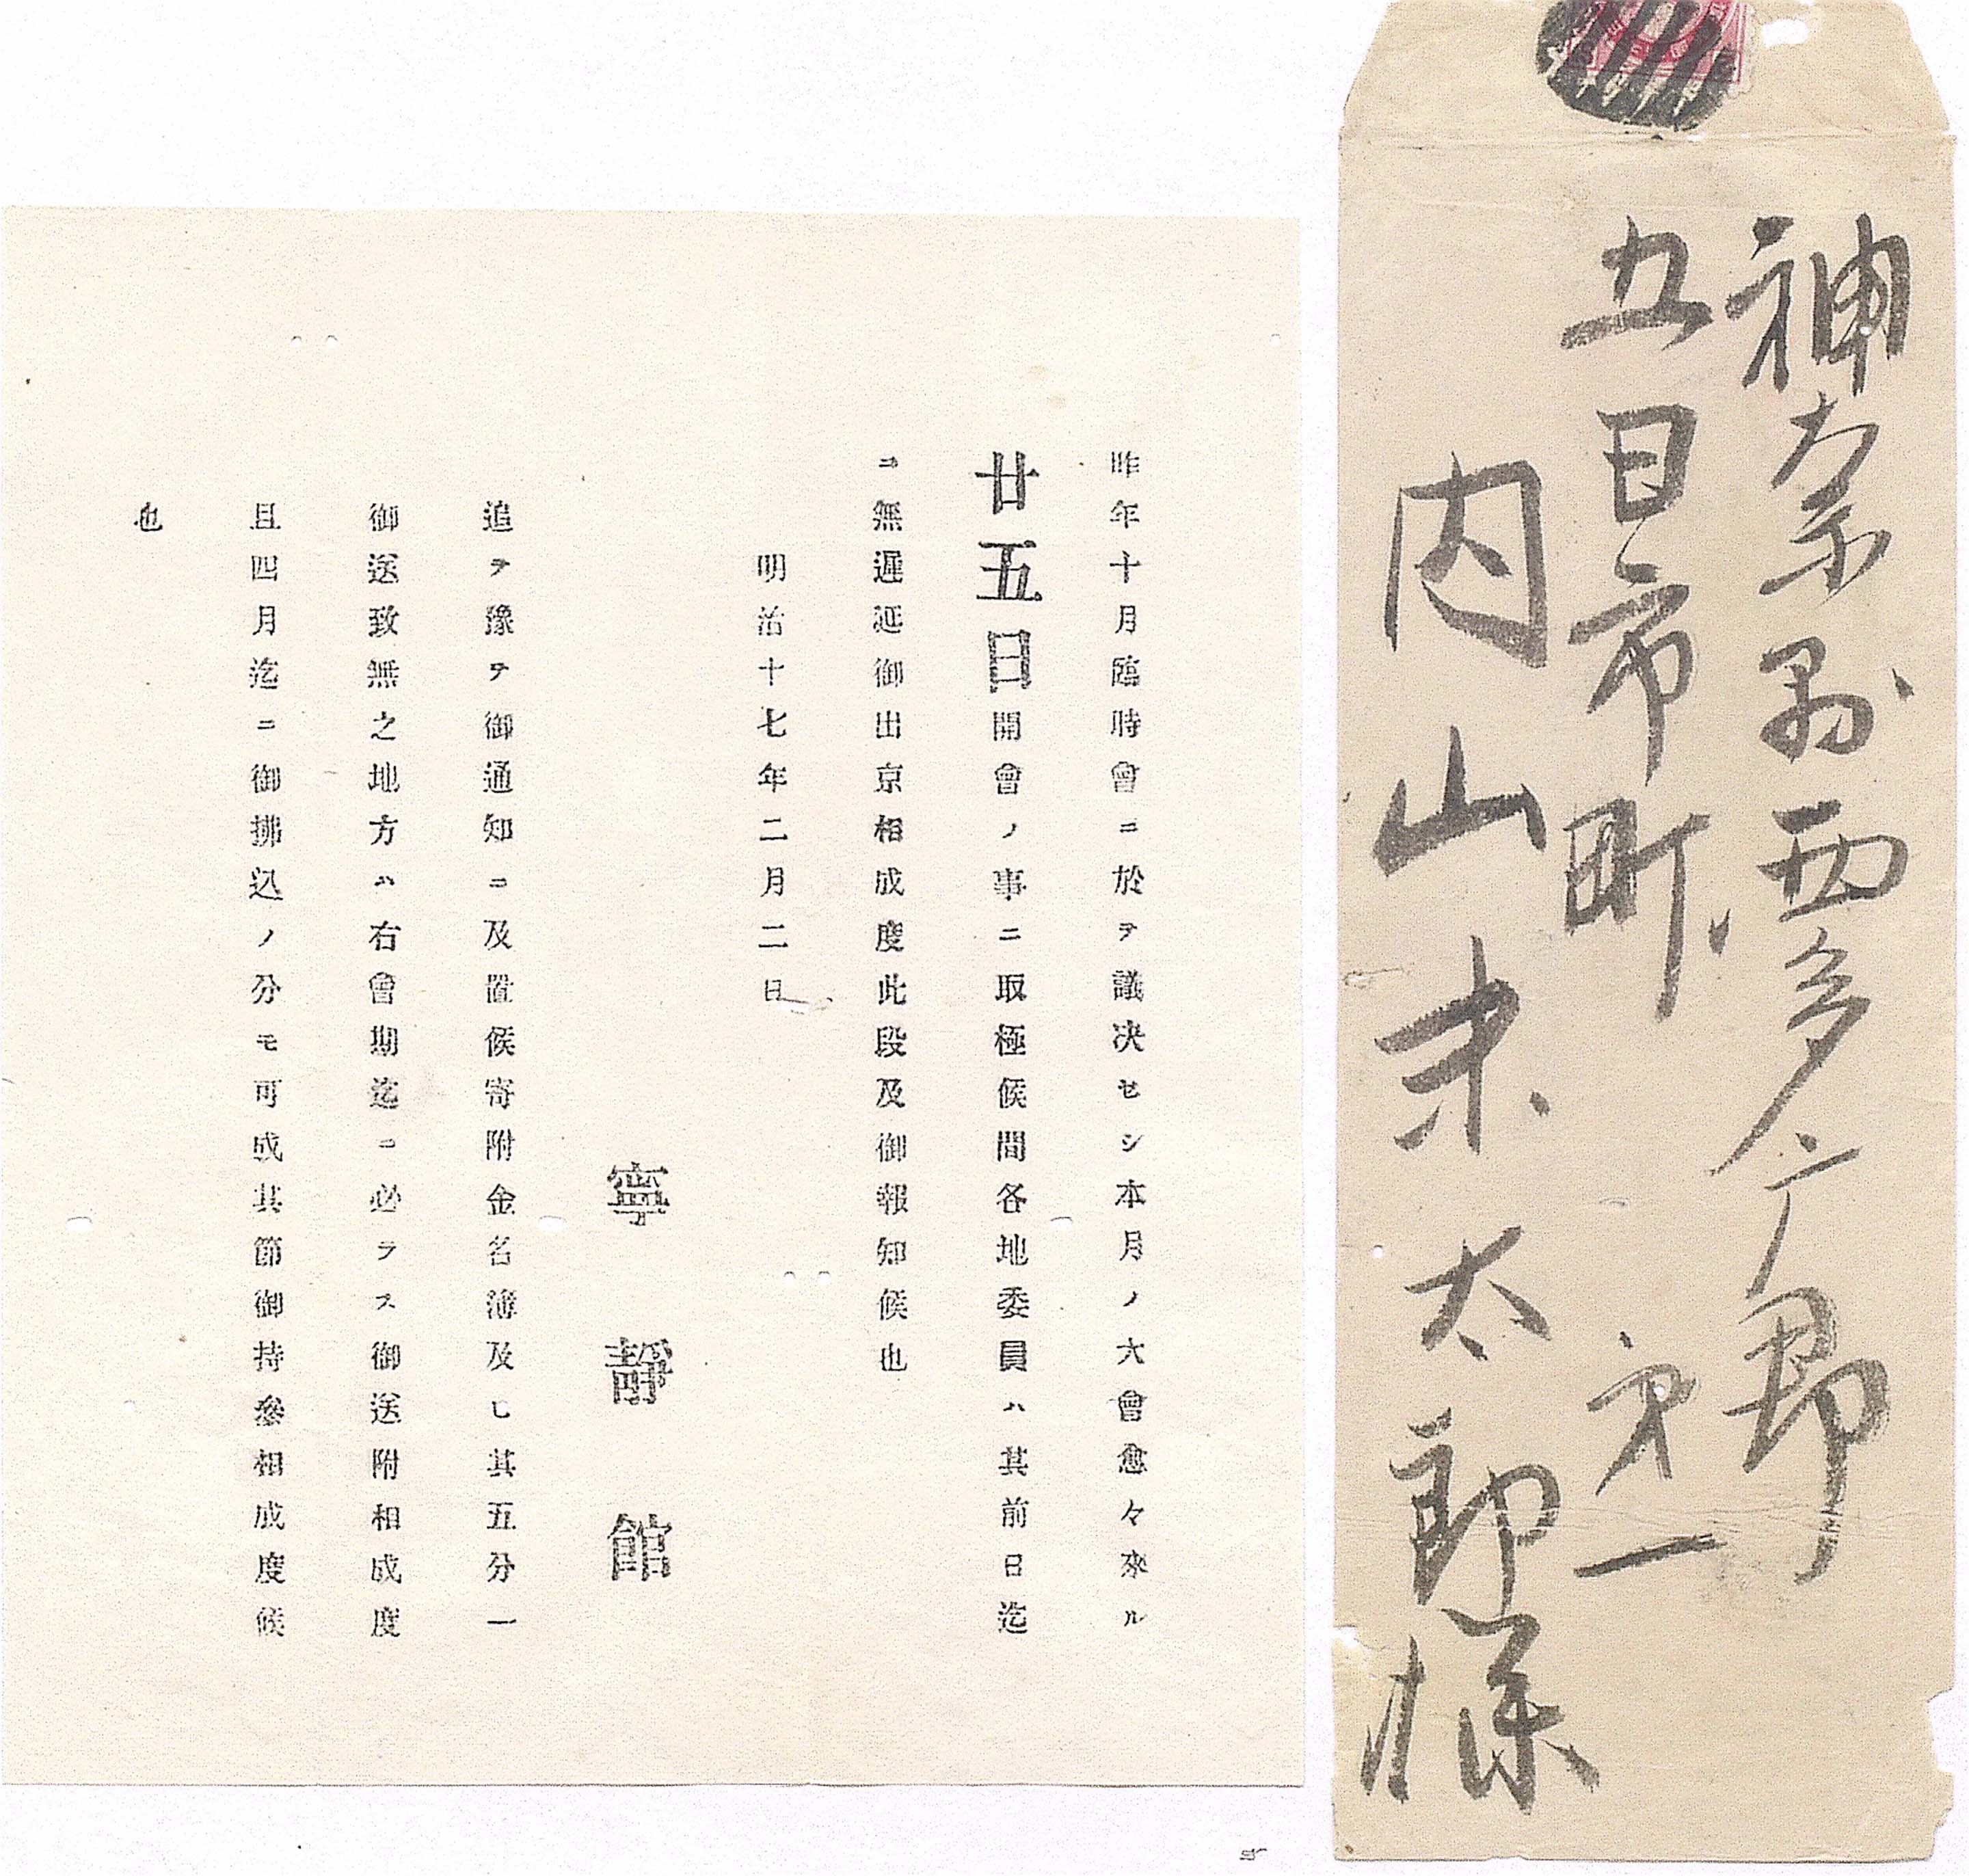 神奈县西多广郡
五日市町
内山末太郎様
昨年十月臨時會ニ於テ議决セシ本月ノ大會愈々來ル
廿五日開會ノ事ニ取極候間各地委員ハ其前日迄
ニ無遲延御出京相成度此段及御報知候也
明治十七年二月二日
寧靜館
追テ豫テ御通知ニ及置候寄附金名簿及ヒ其五分一
御送致無之地方ハ右會期迄ニ必ラス御送附相成度
且四月迄ニ御拂込ノ分モ可成其節御持參相成度候
也